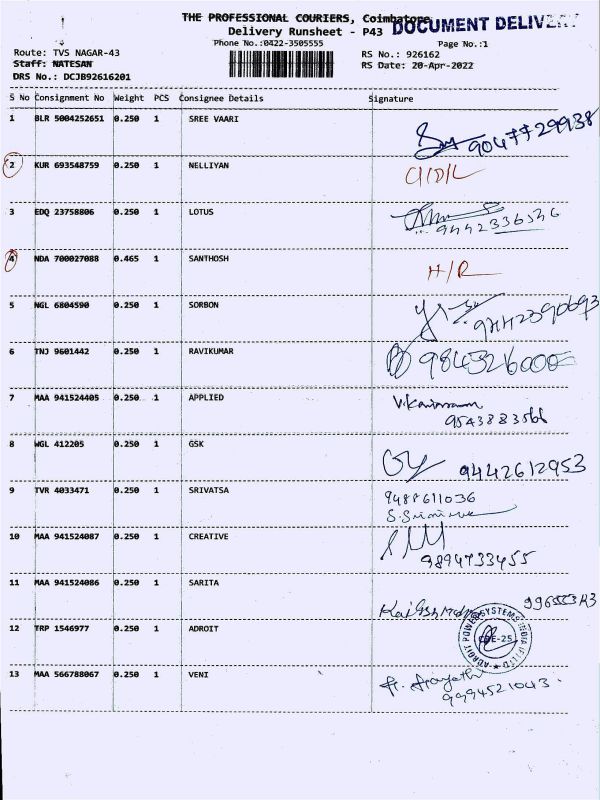 THE PROFESSIONAL COURIERS, Coimbatore
DOCUMENT DELIVERY
Delivery Runsheet - P43
Phone No.:0422-3505555
Page No.:1
Route: TVS NAGAR-43
RS No.: 926162
Staff: NATESAN
RS Date: 20-Apr-2022
DRS No.: DCJB92616201
S No Consignment No Weight PCS Consignee Details Signature
1 BLR 5004252651 0.250 1 SREE VAARI
9047729938
2 KUR 693548759 0.250 1 NELLIYAN
3 EDQ 23758806 0.250 1 LOTUS
9442336536
4 NDA 700027088 0.465 1 SANTHOSH H/R
5 NGL 6804590 0.250 1 SORBON
9442390693
6 TNJ 9601442 0.250 1 RAVIKUMAR
7 MAA 941524405 0.250 1 APPLIED
9543883566
8 WGL 412205 0.250 1 GSK
9442612953
9 TVR 4033471 0.250 1 SRIVATSA 9488611036
10 MAA 941524087 0.250 1 CREATIVE
9894733455
11 MAA 941524086 0.250 1 SARITA
12 TRP 1546977 0.250 1 ADROIT
ADROIT POWER SYSTEMS INDIA (P) LTD
CBE-25
13 MAA 566788067 0.250 1 VENI
9994521043